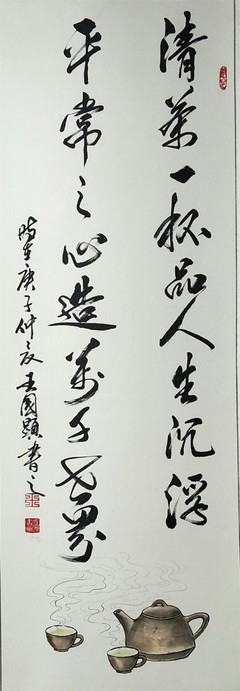 清茶一杯品人生沉浮
平常之心造万千世界
时在庚子仲夏王国显书之